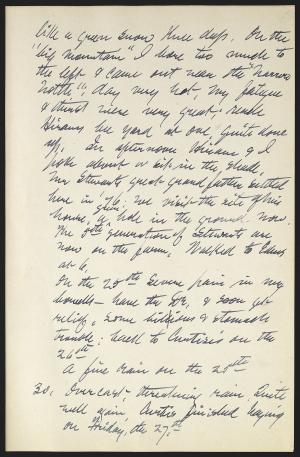 like a green snow three days. On the
"big mountain" I bore too much to
the left & came out near the "Narrow
Notch"; day very hot, my fatigue
& thirst were very great; reach
Hiram's the yard at one, quite done
up. In afternoon Hiram & I
poke about or sit in the shade.
Mr Stewarts great grand father settled
here in '76; we visit the site of his
house, a hole in the ground now.
The 5th generation of Stewarts are
now on the farm. Walked to Edens
at 6.
On the 20th severe pain in my
bowels — have the DR, & soon get
relief, some bilious & stomach
trouble; back to Curtis's on the
26th
A fine rain on the 25th
30. Overcast – threatening rain. Quite
well again. Curtis finished haying
on Friday, the 27th.